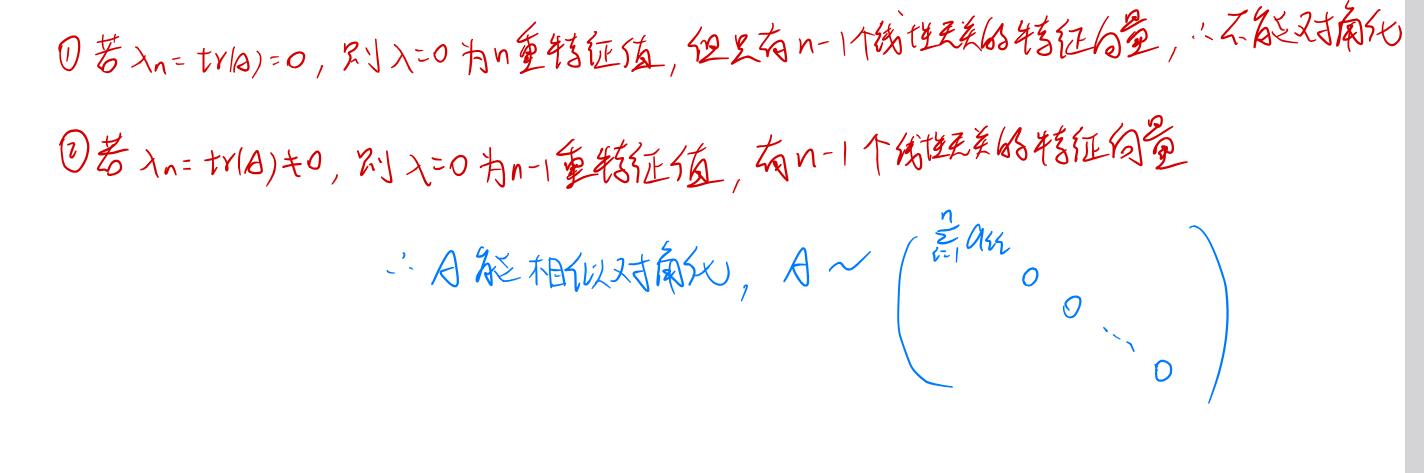 ① 若 λₙ = tr(A) = 0, 则 λ=0 为 n 重特征值, 但只有 n-1 个线性无关的特征向量, ∴ 不能对角化
② 若 λₙ = tr(A) ≠ 0, 则 λ=0 为 n-1 重特征值, 有 n-1 个线性无关的特征向量
∴ A 能相似对角化, A ~ ( ∑ᵢ₌₁ⁿ aᵢᵢ
0
0
⋱
0 )